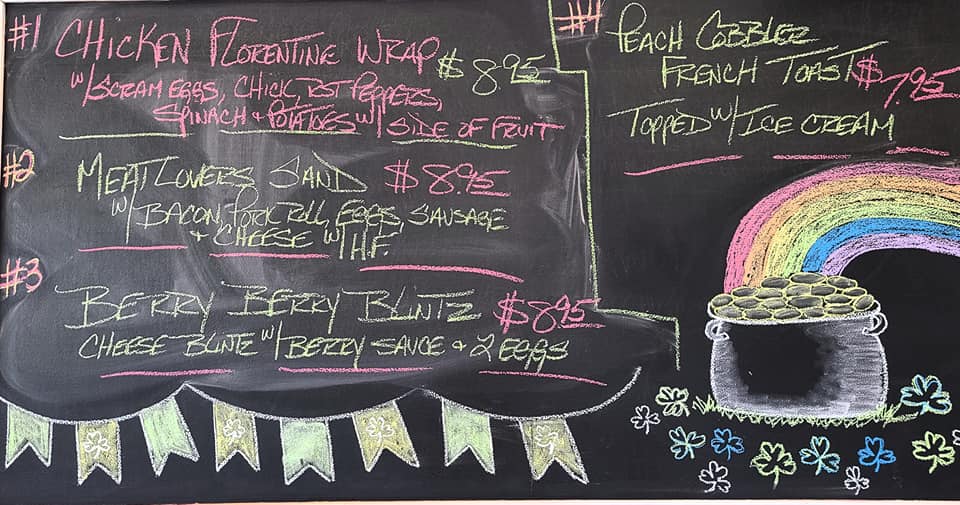 #1 CHICKEN FLORENTINE WRAP $8.95
W/SCRAM EGGS, CHICK, RST PEPPERS,
SPINACH + POTATOES W/ SIDE OF FRUIT
#2 MEATLOVERS SAND $8.95
W/BACON, PORK ROLL, EGGS, SAUSAGE
+ CHEESE W/ H.F.
#3 BERRY BERRY BLINTZ $8.95
CHEESE BLINTZ W/BERRY SAUCE + 2 EGGS
#4 PEACH COBBLER
FRENCH TOAST $7.95
TOPPED W/ICE CREAM